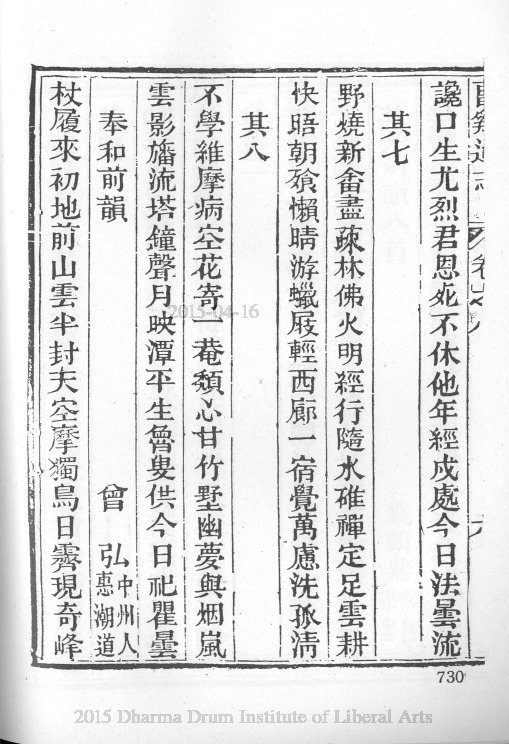 讒口生尤烈君恩死不休他年經戍處今日法曇流
其七
野燒新畬盡疎林佛火明經行隨水碓禪定足雲耕
快晤朝飱懶晴游蠟屐輕西廊一宿覺萬慮洗孤清
其八
不學維摩病空花寄一菴頹心甘竹墅幽夢與烟嵐
雲影旛流塔鐘聲月映潭平生魯叟供今日祀瞿曇
奉和前韻 曾弘 中州人惠潮道
杖履來初地前山雲半封天空摩獨鳥日霽現奇峰
730
2015-04-16
2015 Dharma Drum Institute of Liberal Arts